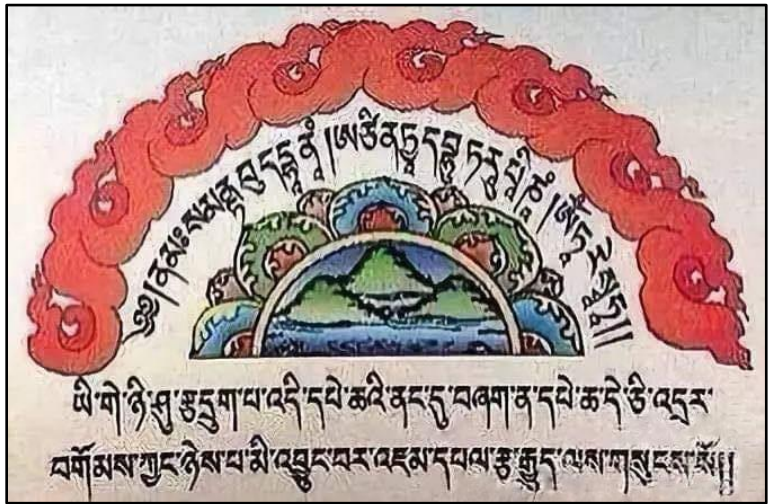 ༄༅། །ན་མཿས་མནྟ་བུད་དྷཱ་ནཱཾ། ཨ་ཙིནྟྱ་
ཡི་གེ་ཉི་ཤུ་རྩ་དྲུག་པ་འདི་དཔེ་ཆའི་ནང་དུ་བཞག་ན་དཔེ་ཆ་དེ་ཅི་འདྲར་
བགོམས་ཀྱང་ཉེས་པ་མི་འབྱུང་བར་འཇམ་དཔལ་རྩ་རྒྱུད་ལས་གསུངས་སོ།།